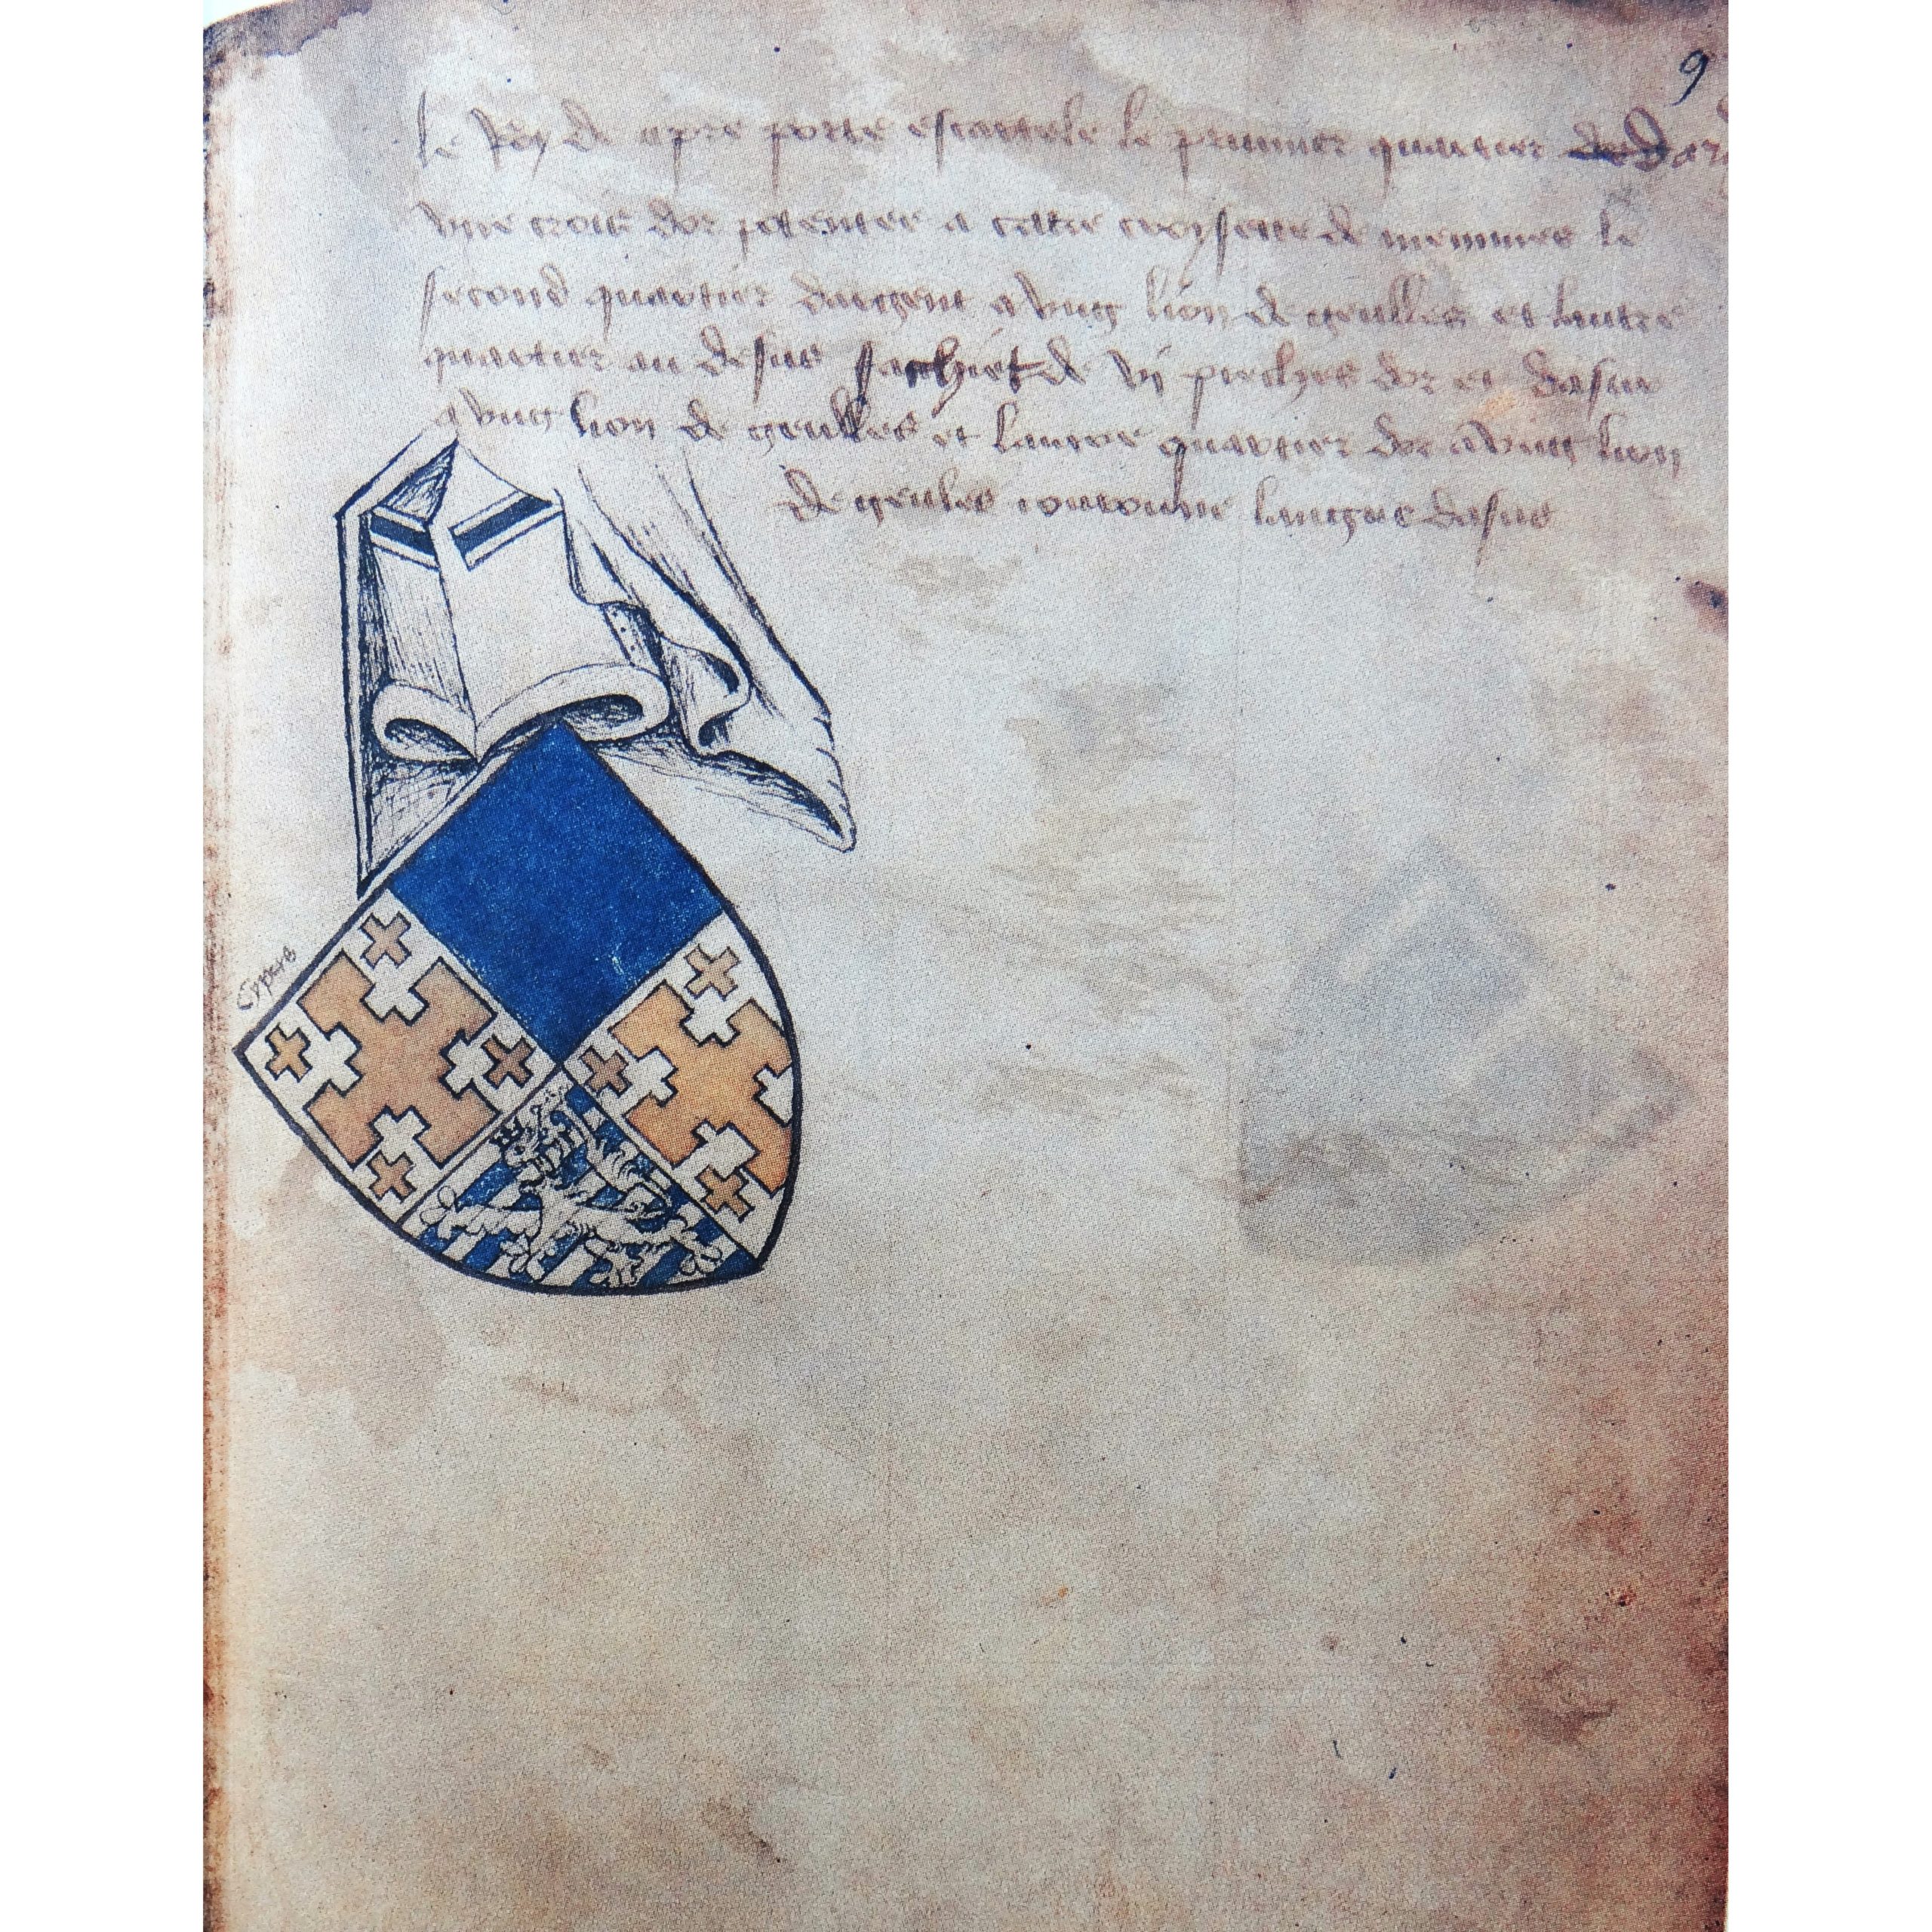 9
le Roy de cipre porte escartele le premier quartier dar
vne crois dor potencee a croysette de mesmes le
second quartier dargent a vng lion de geulles et lautre
quartier au desus de vj pieches dor et dasur
a vng lion de geulles et lautre quartier dor a vng lion
de geules couronne langue dasur
Cypers